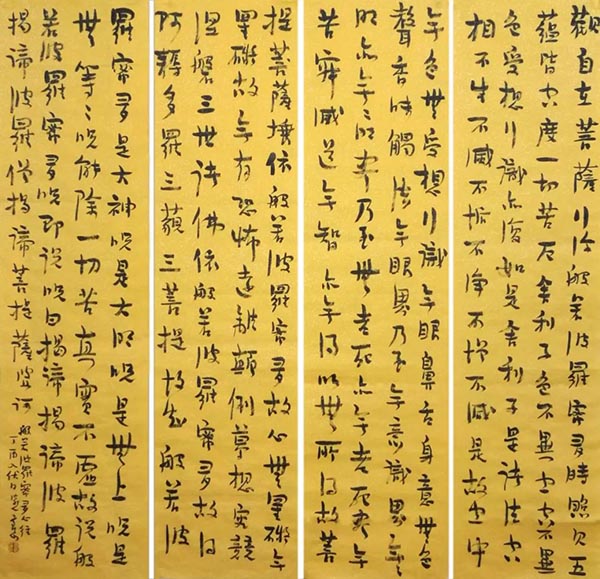 觀自在菩薩行深般若波羅蜜多時照見五
蘊皆空度一切苦厄舍利子色不異空空不異
色受想行識亦復如是舍利子是諸法空
相不生不滅不垢不淨不增不減是故空中
無色無受想行識無眼鼻舌身意無色
聲香味觸法無眼界乃至無意識界無〻
明亦無〻明盡乃至無老死亦無老死盡無
苦寂滅道無智亦無得以無所得故菩
提菩薩埵依般若波羅蜜多故心無罣礙無
罣礙故無有恐怖遠離顛倒夢想究竟
涅槃三世諸佛依般若波羅蜜多故得
阿耨多羅三藐三菩提故知般若波
羅蜜多是大神呪是大明呪是無上呪是
無等〻呪能除一切苦真實不虛故說般
若波羅蜜多呪即說呪曰揭諦揭諦波羅
揭諦波羅僧揭諦菩提薩婆訶
般若波羅蜜多心經
丁酉入伏日